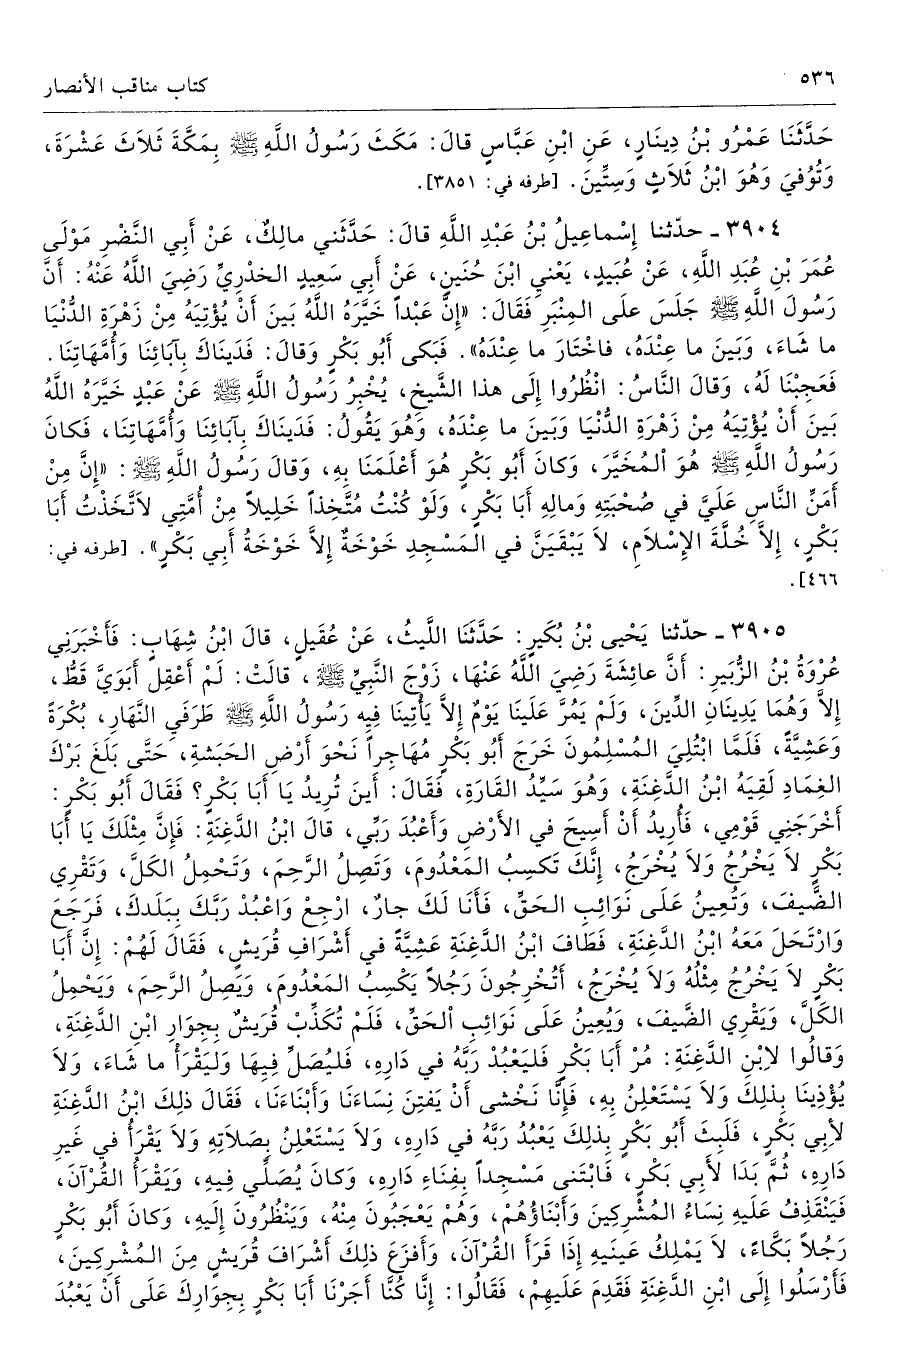 ٥٣٦ كتاب مناقب الأنصار
حَدَّثَنَا عَمْرُو بْنُ دِينَارٍ، عَنِ ابْنِ عَبَّاسٍ قالَ: مَكَثَ رَسُولُ اللَّهِ ﷺ بِمَكَّةَ ثَلاَثَ عَشْرَةَ،
وَتُوُفِّيَ وَهُوَ ابْنُ ثَلاَثٍ وَسِتِّينَ. [طرفه في: ٣٨٥١].
٣٩٠٤ ـ حدّثنا إِسْماعِيلُ بْنُ عَبْدِ اللَّهِ قالَ: حَدَّثَني مالِكٌ، عَنْ أَبِي النَّضْرِ مَوْلَى
عُمَرَ بْنِ عُبَيدِ اللَّهِ، عَنْ عُبَيدٍ، يَعْنِي ابْنَ حُنَينٍ، عَنْ أَبِي سَعِيدٍ الخدْرِيِّ رَضِيَ اللَّهُ عَنْهُ: أَنَّ
رَسُولَ اللَّهِ ﷺ جَلَسَ علَى المِنْبَرِ فَقَالَ: «إِنَّ عَبْداً خَيَّرَهُ اللَّهُ بَينَ أَنْ يُؤْتِيَهُ مِنْ زَهْرَةِ الدُّنْيَا
ما شَاءَ، وَبَينَ ما عِنْدَهُ، فاخْتَارَ ما عِنْدَهُ». فَبَكى أَبُو بَكْرٍ وَقالَ: فَدَينَاكَ بِآبَائِنَا وَأُمَّهَاتِنَا.
فَعَجِبْنَا لَهُ، وَقالَ النَّاسُ: انْظُرُوا إِلَى هذا الشَّيخِ، يُخْبِرُ رَسُولُ اللَّهِ ﷺ عَنْ عَبْدٍ خَيَّرَهُ اللَّهُ
بَينَ أَنْ يُؤْتِيَهُ مِنْ زَهْرَةِ الدُّنْيَا وَبَينَ ما عِنْدَهُ، وَهُوَ يَقُولُ: فَدَينَاكَ بِآبَائِنَا وَأُمَّهَاتِنَا، فَكانَ
رَسُولُ اللَّهِ ﷺ هُوَ المُخَيَّرَ، وَكانَ أَبُو بَكْرٍ هُوَ أَعْلَمَنَا بِهِ، وَقالَ رَسُولُ اللَّهِ ﷺ: «إِنَّ مِنْ
أَمَنِّ النَّاسِ عَلَيَّ في صُحْبَتِهِ وَمالِهِ أَبَا بَكْرٍ، وَلَوْ كُنْتُ مُتَّخِذاً خَلِيلاً مِنْ أُمَّتِي لاَتَّخَذْتُ أَبَا
بَكْرٍ، إِلاَّ خُلَّةَ الإِسْلاَمِ، لاَ يَبْقَيَنَّ في المَسْجِدِ خَوْخَةٌ إِلاَّ خَوْخَةُ أَبِي بَكْرٍ». [طرفه في:
٤٦٦].
٣٩٠٥ ـ حدّثنا يَحْيى بْنُ بُكَيرٍ: حَدَّثَنَا اللَّيثُ، عَنْ عُقَيلٍ، قالَ ابْنُ شِهَابٍ: فَأَخْبَرَنِي
عُرْوَةُ بْنُ الزُّبَيرِ: أَنَّ عائِشَةَ رَضِيَ اللَّهُ عَنْهَا، زَوْجَ النَّبِيِّ ﷺ، قالَتْ: لَمْ أَعْقِل أَبَوَيَّ قَطُّ،
إِلاَّ وَهُمَا يَدِينَانِ الدِّينَ، وَلَمْ يَمُرَّ عَلَينَا يَوْمٌ إِلاَّ يَأْتِينَا فِيهِ رَسُولُ اللَّهِ ﷺ طَرَفَيِ النَّهَارِ، بُكْرَةً
وَعَشِيَّةً، فَلَمَّا ابْتُلِيَ المُسْلِمُونَ خَرَجَ أَبُو بَكْرٍ مُهَاجِراً نَحْوَ أَرْضِ الحَبَشَةِ، حَتَّى بَلَغَ بَرْكَ
الغِمَادِ لَقِيَهُ ابْنُ الدَّغِنَةِ، وَهُوَ سَيِّدُ القَارَةِ، فَقَالَ: أَينَ تُرِيدُ يَا أَبَا بَكْرٍ؟ فَقالَ أَبُو بَكْرٍ:
أَخْرَجَنِي قَوْمِي، فَأُرِيدُ أَنْ أَسِيحَ في الأَرْضِ وَأَعْبُدَ رَبِّي، قالَ ابْنُ الدَّغِنَةِ: فَإِنَّ مِثْلَكَ يَا أَبَا
بَكْرٍ لاَ يَخْرُجُ وَلاَ يُخْرَجُ، إِنَّكَ تَكْسِبُ المَعْدُومَ، وَتَصِلُ الرَّحِمَ، وَتَحْمِلُ الكَلَّ، وَتَقْرِي
الضَّيفَ، وَتُعِينُ عَلَى نَوَائِبِ الحَقِّ، فَأَنَا لَكَ جارٌ، ارْجِعْ وَاعْبُدْ رَبَّكَ بِبَلَدكَ، فَرَجَعَ
وَارْتَحَلَ مَعَهُ ابْنُ الدَّغِنَةِ، فَطَافَ ابْنُ الدَّغِنَةِ عَشِيَّةً في أَشْرَافِ قُرَيشٍ، فَقَالَ لَهُمْ: إِنَّ أَبَا
بَكْرٍ لاَ يَخْرُجُ مِثْلُهُ وَلاَ يُخْرَجُ، أَتُخْرِجُونَ رَجُلاً يَكْسِبُ المَعْدُومَ، وَيَصِلُ الرَّحِمَ، وَيَحْمِلُ
الكَلَّ، وَيَقْرِي الضَّيفَ، وَيُعِينُ عَلَى نَوَائِبِ الحَقِّ، فَلَمْ تُكَذِّبْ قُرَيشٌ بِجِوَارِ ابْنِ الدَّغِنَةِ،
وَقالُوا لاِبْنِ الدَّغِنَةِ: مُرْ أَبَا بَكْرٍ فَليَعْبُدْ رَبَّهُ في دَارِهِ، فَليُصَلِّ فِيهَا وَليَقْرَأْ ما شَاءَ، وَلاَ
يُؤْذِينَا بِذلِكَ وَلاَ يَسْتَعْلِنْ بِهِ، فَإِنَّا نَخْشى أَنْ يَفتِنَ نِسَاءَنَا وَأَبْنَاءَنَا، فَقَالَ ذلِكَ ابْنُ الدَّغِنَةِ
لأَبِي بَكْرٍ، فَلَبِثَ أَبُو بَكْرٍ بِذلِكَ يَعْبُدُ رَبَّهُ في دَارِهِ، وَلاَ يَسْتَعْلِنُ بِصَلاَتِهِ وَلاَ يَقْرَأُ في غَيرِ
دَارِهِ، ثُمَّ بَدَا لأَبِي بَكْرٍ، فَابْتَنى مَسْجِداً بِفِنَاءِ دَارِهِ، وَكانَ يُصَلِّي فِيهِ، وَيَقْرَأُ القُرْآنَ،
فَيَنْقَذِفُ عَلَيهِ نِسَاءُ المُشْرِكِينَ وَأَبْنَاؤُهُمْ، وَهُمْ يَعْجَبُونَ مِنْهُ، وَيَنْظُرُونَ إِلَيهِ، وَكانَ أَبُو بَكْرٍ
رَجُلاً بَكَّاءً، لاَ يَمْلِكُ عَينَيهِ إِذَا قَرَأَ القُرْآنَ، وَأَفزَعَ ذلِكَ أَشْرَافَ قُرَيشٍ مِنَ المُشْرِكِينَ،
فَأَرْسَلُوا إِلَى ابْنِ الدَّغِنَةِ فَقَدِمَ عَلَيهِمْ، فَقَالُوا: إِنَّا كُنَّا أَجَرْنَا أَبَا بَكْرٍ بِجِوَارِكَ عَلى أَنْ يَعْبُدَ